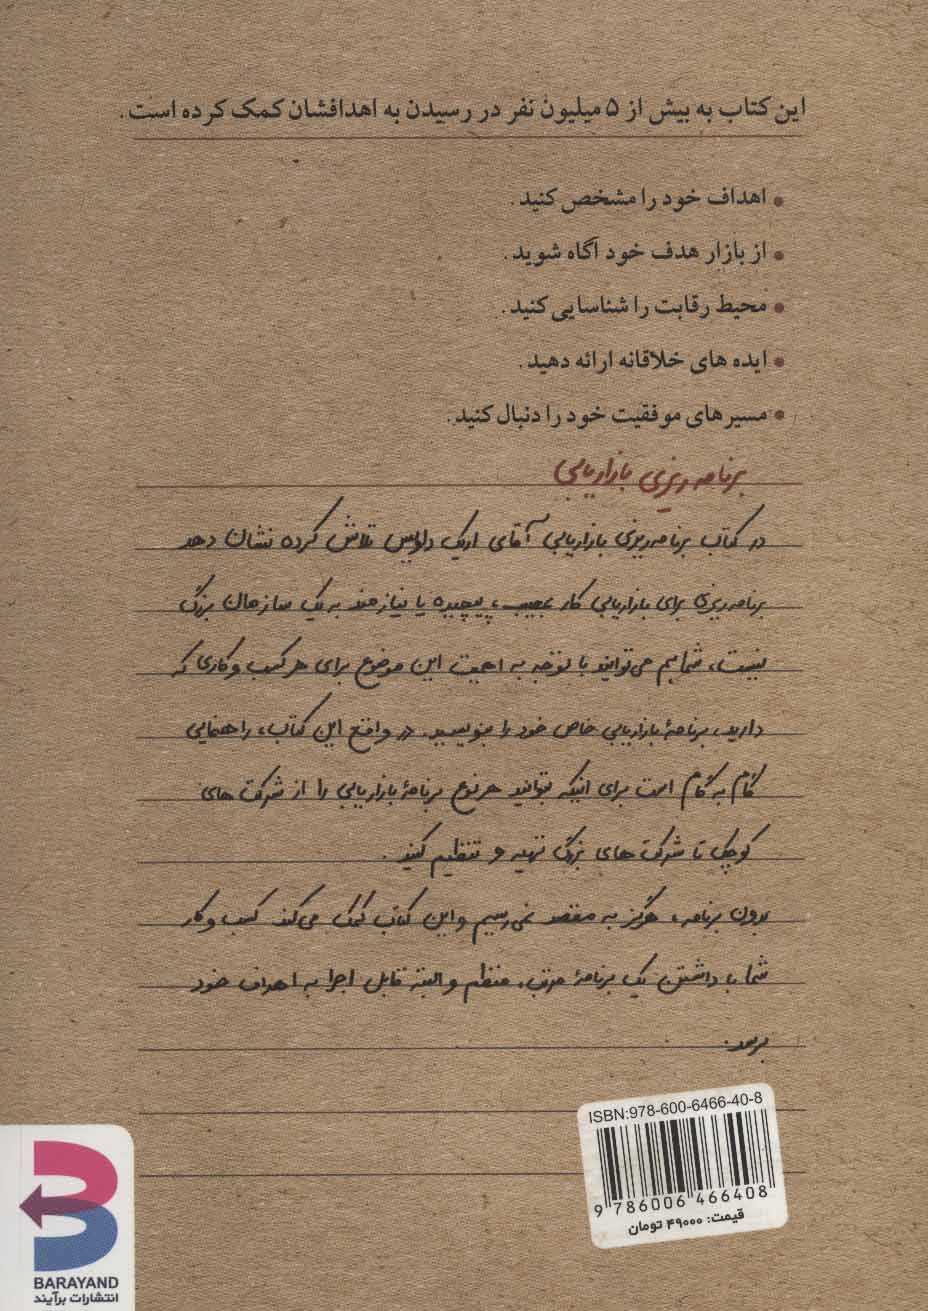 این کتاب به بیش از ۵ میلیون نفر در رسیدن به اهدافشان کمک کرده است.
• اهداف خود را مشخص کنید.
• از بازار هدف خود آگاه شوید.
• محیط رقابت را شناسایی کنید.
• ایده های خلاقانه ارائه دهید.
• مسیرهای موفقیت خود را دنبال کنید.
برنامه ریزی بازاریابی
در کتاب برنامه‌ریزی بازاریابی آقای اریک دلوپس تلاش کرده نشان دهد
برنامه‌ریزی برای بازاریابی کار عجیب، پیچیده یا نیازمند به یک سازمان بزرگ
نیست، شما هم می‌توانید با توجه به اهمیت این موضوع برای هر کسب و کاری که
دارید، برنامهٔ بازاریابی خاص خود را بنویسید. در واقع این کتاب، راهنمایی
گام به گام است برای اینکه بتوانید هر نوع برنامهٔ بازاریابی را از شرکت های
کوچک تا شرکت های بزرگ تهیه و تنظیم کنید.
بدون برنامه، هرگز به مقصد نمی‌رسیم و این کتاب کمک می‌کند کسب و کار
شما با داشتن یک برنامهٔ مرتب، منظم و البته قابل اجرا به اهداف خود
برسد.
ISBN:978-600-6466-40-8
9 786006 466408
قیمت: ۴۹۰۰۰ تومان
BARAYAND
انتشارات برآیند